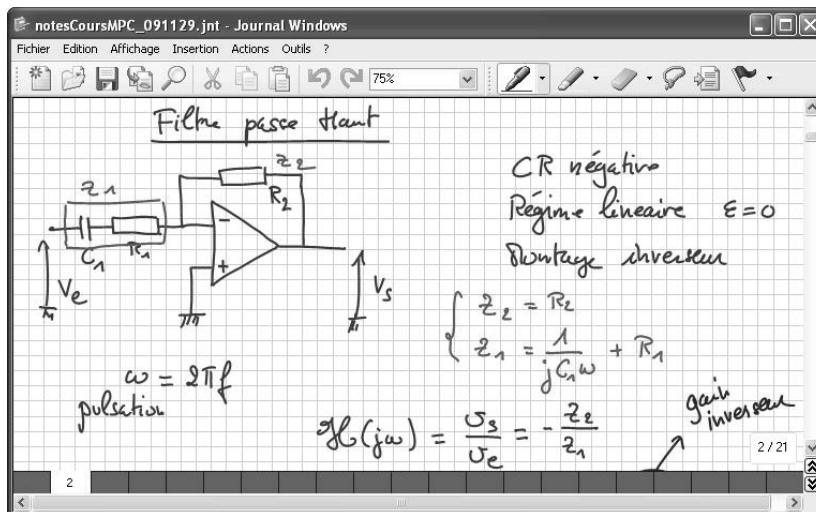 notesCoursMPC_091129.jnt - Journal Windows
Fichier Edition Affichage Insertion Actions Outils ?
75%
Filtre passe Haut
Z2
R2
Z1
C1 R1
-
+
Ve
Vs
CR négative
Régime lineaire ε=0
Montage inverseur
Z2 = R2
Z1 = 1/(jC1ω) + R1
ω = 2πf
pulsation
H(jω) = vs/ve = - Z2/Z1
gain
inverseur
2 / 21
2